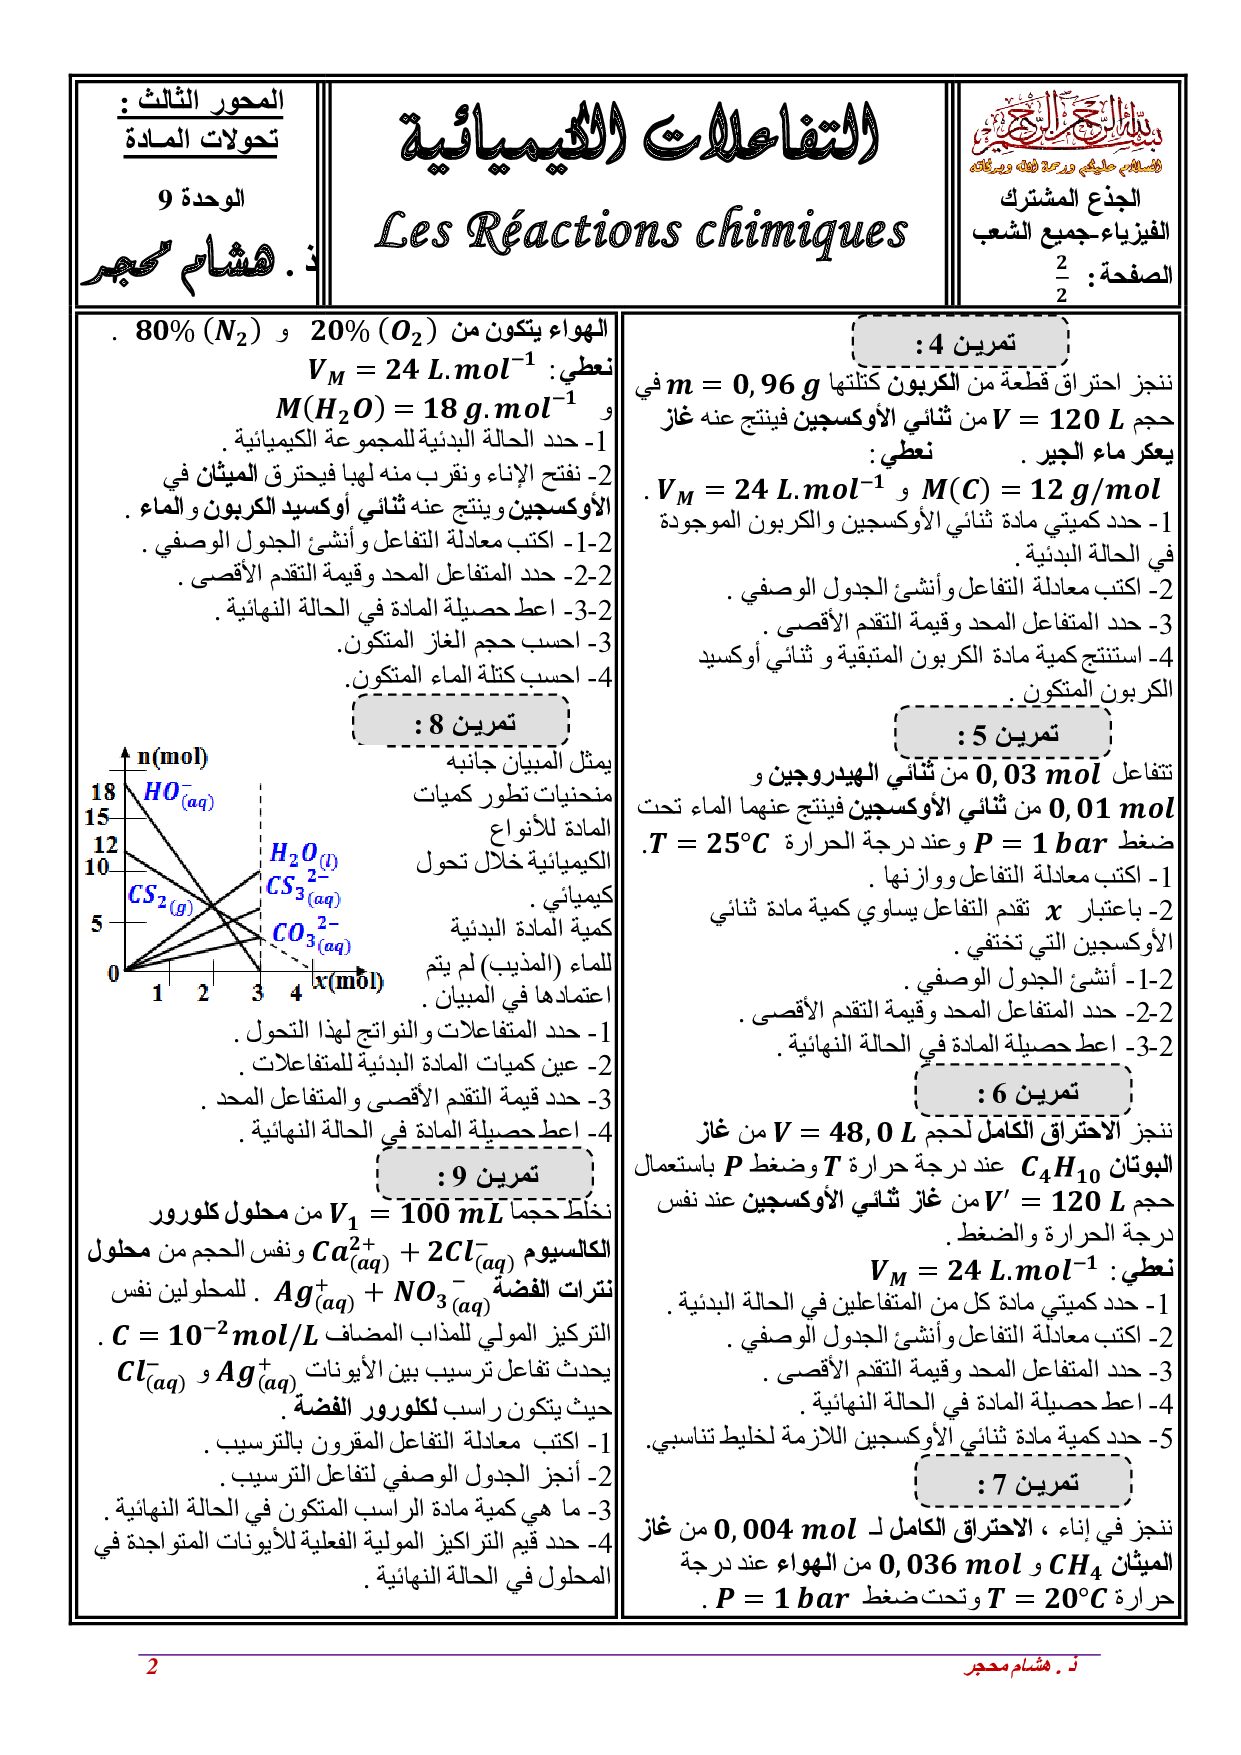 بسم الله الرحمن الرحيم
السلام عليكم ورحمة الله وبركاته
الجذع المشترك
الفيزياء-جميع الشعب
الصفحة : 2/2
التفاعلات الكيميائية
Les Réactions chimiques
المحور الثالث :
تحولات المـادة
الوحدة 9
ذ . هشام محجر
تمريـن 4 :
ننجز احتراق قطعة من الكربون كتلتها m = 0, 96 g في
حجم V = 120 L من ثنائي الأوكسجين فينتج عنه غاز
يعكر ماء الجير . نعطي :
M(C) = 12 g/mol و V_M = 24 L.mol⁻¹ .
1- حدد كميتي مادة ثنائي الأوكسجين والكربون الموجودة
في الحالة البدئية .
2- اكتب معادلة التفاعل وأنشئ الجدول الوصفي .
3- حدد المتفاعل المحد وقيمة التقدم الأقصى .
4- استنتج كمية مادة الكربون المتبقية و ثنائي أوكسيد
الكربون المتكون .
تمريـن 5 :
تتفاعل 0, 03 mol من ثنائي الهيدروجين و
0, 01 mol من ثنائي الأوكسجين فينتج عنهما الماء تحت
ضغط P = 1 bar وعند درجة الحرارة T = 25°C.
1- اكتب معادلة التفاعل ووازنها .
2- باعتبار x تقدم التفاعل يساوي كمية مادة ثنائي
الأوكسجين التي تختفي .
2-1- أنشئ الجدول الوصفي .
2-2- حدد المتفاعل المحد وقيمة التقدم الأقصى .
2-3- اعط حصيلة المادة في الحالة النهائية .
تمريـن 6 :
ننجز الاحتراق الكامل لحجم V = 48, 0 L من غاز
البوتان C₄H₁₀ عند درجة حرارة T وضغط P باستعمال
حجم V′ = 120 L من غاز ثنائي الأوكسجين عند نفس
درجة الحرارة والضغط .
نعطي : V_M = 24 L.mol⁻¹
1- حدد كميتي مادة كل من المتفاعلين في الحالة البدئية .
2- اكتب معادلة التفاعل وأنشئ الجدول الوصفي .
3- حدد المتفاعل المحد وقيمة التقدم الأقصى .
4- اعط حصيلة المادة في الحالة النهائية .
5- حدد كمية مادة ثنائي الأوكسجين اللازمة لخليط تناسبي.
تمريـن 7 :
ننجز في إناء ، الاحتراق الكامل لـ 0, 004 mol من غاز
الميثان CH₄ و 0, 036 mol من الهواء عند درجة
حرارة T = 20°C وتحت ضغط P = 1 bar .
الهواء يتكون من 20% (O₂) و 80% (N₂) .
نعطي : V_M = 24 L.mol⁻¹
و M(H₂O) = 18 g.mol⁻¹
1- حدد الحالة البدئية للمجموعة الكيميائية .
2- نفتح الإناء ونقرب منه لهبا فيحترق الميثان في
الأوكسجين وينتج عنه ثنائي أوكسيد الكربون والماء .
2-1- اكتب معادلة التفاعل وأنشئ الجدول الوصفي .
2-2- حدد المتفاعل المحد وقيمة التقدم الأقصى .
2-3- اعط حصيلة المادة في الحالة النهائية .
3- احسب حجم الغاز المتكون.
4- احسب كتلة الماء المتكون.
تمريـن 8 :
يمثل المبيان جانبه
منحنيات تطور كميات
المادة للأنواع
الكيميائية خلال تحول
كيميائي .
كمية المادة البدئية
للماء (المذيب) لم يتم
اعتمادها في المبيان .
n(mol)
18
15
12
10
5
0
1 2 3 4 x(mol)
HO⁻(aq)
H₂O(l)
CS₃²⁻(aq)
CS₂(g)
CO₃²⁻(aq)
1- حدد المتفاعلات والنواتج لهذا التحول .
2- عين كميات المادة البدئية للمتفاعلات .
3- حدد قيمة التقدم الأقصى والمتفاعل المحد .
4- اعط حصيلة المادة في الحالة النهائية .
تمريـن 9 :
نخلط حجما V₁ = 100 mL من محلول كلورور
الكالسيوم Ca²⁺(aq) + 2Cl⁻(aq) ونفس الحجم من محلول
نترات الفضة Ag⁺(aq) + NO₃⁻(aq) . للمحلولين نفس
التركيز المولي للمذاب المضاف C = 10⁻² mol/L .
يحدث تفاعل ترسيب بين الأيونات Ag⁺(aq) و Cl⁻(aq)
حيث يتكون راسب لكلورور الفضة .
1- اكتب معادلة التفاعل المقرون بالترسيب .
2- أنجز الجدول الوصفي لتفاعل الترسيب .
3- ما هي كمية مادة الراسب المتكون في الحالة النهائية .
4- حدد قيم التراكيز المولية الفعلية للأيونات المتواجدة في
المحلول في الحالة النهائية .
ذ . هشام محجر
2